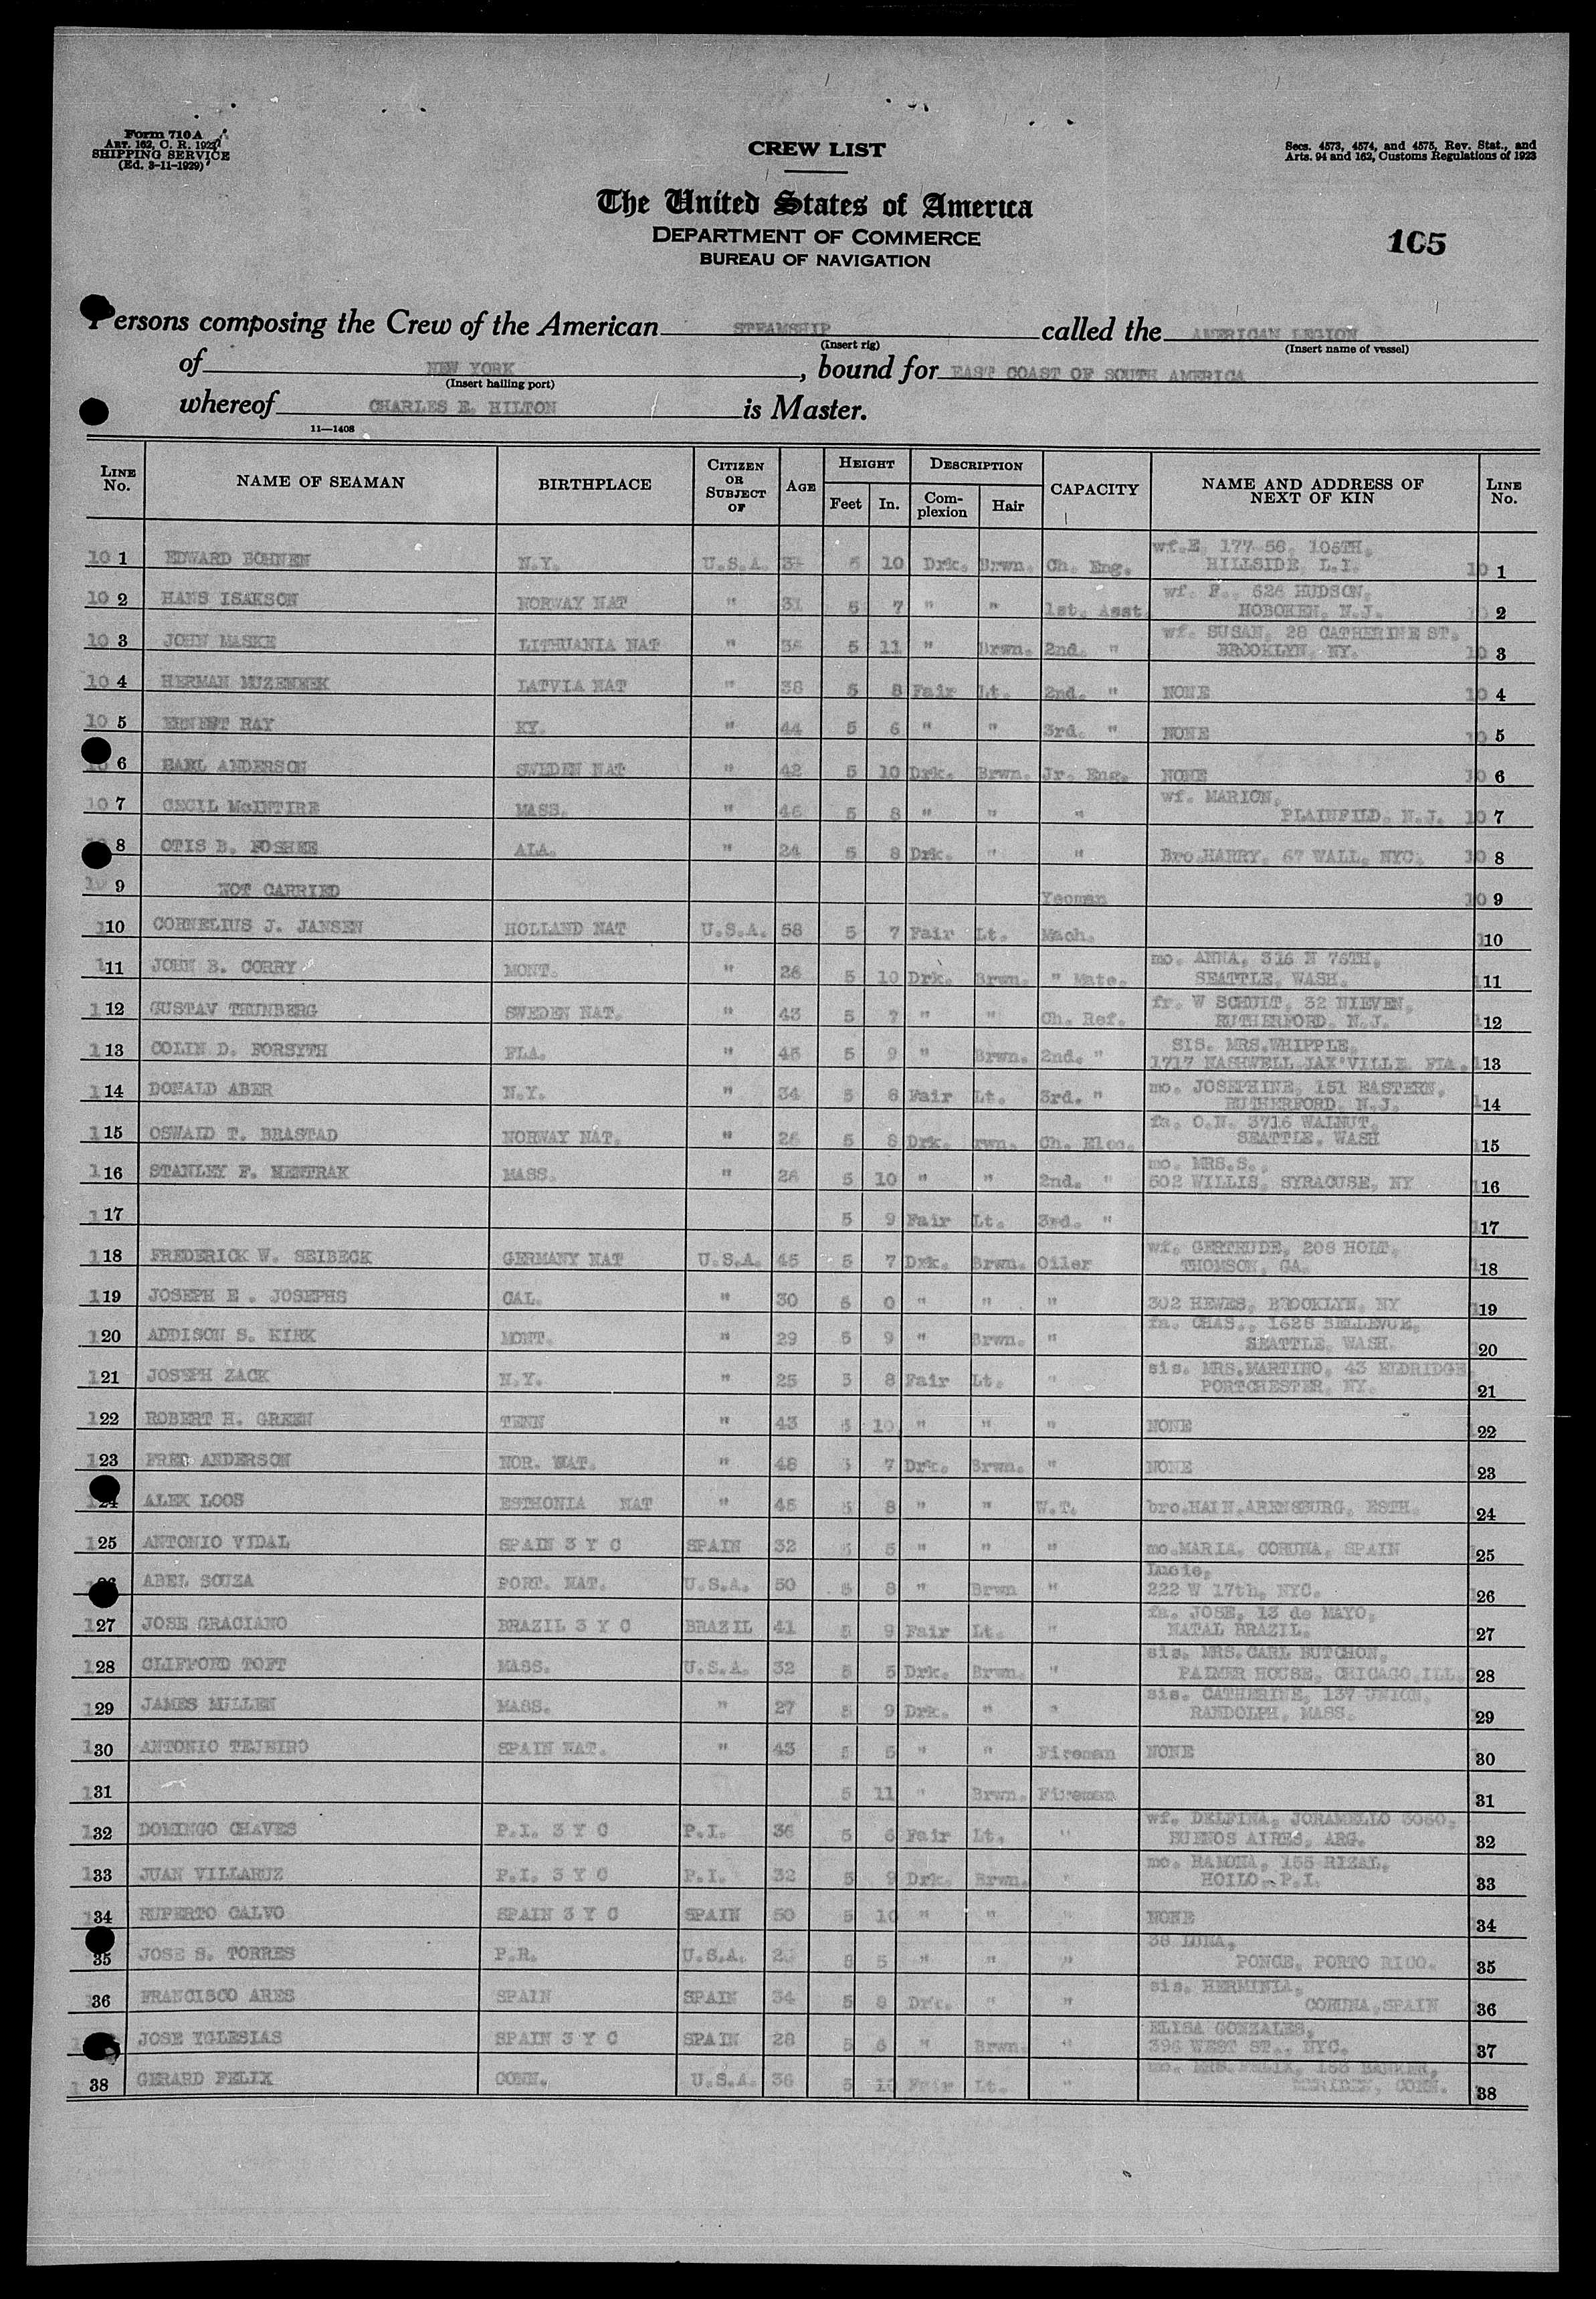 Form 710 A
ART. 162, C. R. 1923
SHIPPING SERVICE
(Ed. 3-11-1929)
CREW LIST
Secs. 4573, 4574, and 4575, Rev. Stat., and
Arts. 94 and 162, Customs Regulations of 1923
The United States of America
DEPARTMENT OF COMMERCE
BUREAU OF NAVIGATION
105
Persons composing the Crew of the American STEAMSHIP called the AMERICAN LEGION
(Insert rig) (Insert name of vessel)
of NEW YORK, bound for EAST COAST OF SOUTH AMERICA
(Insert hailing port)
whereof CHARLES E. HILTON is Master.
11—1408
LINE No. NAME OF SEAMAN BIRTHPLACE CITIZEN OR SUBJECT OF AGE HEIGHT Feet In. DESCRIPTION Complexion Hair CAPACITY NAME AND ADDRESS OF NEXT OF KIN LINE No.
10 1 EDWARD BOHNEN N.Y. U.S.A. 5 10 Drk. Brwn. Ch. Eng. wf.E 177 56, 106TH, HILLSIDE, L.I. 10 1
10 2 HANS ISAKSON NORWAY NAT " 31 5 7 " " 1st. Asst wf. F., 626 HUDSON, HOBOKEN, N.J. 10 2
10 3 JOHN MASKE LITHUANIA NAT " 5 11 " Brwn. 2nd. " wf. SUSAN, 28 CATHERINE ST. BROOKLYN, NY. 10 3
10 4 HERMAN MUZENEEK LATVIA NAT " 38 5 8 Fair Lt. 2nd. " NONE 10 4
10 5 ERNEST RAY KY. " 44 5 6 " " 3rd. " NONE 10 5
10 6 EARL ANDERSON SWEDEN NAT " 42 5 10 Drk. Brwn. Jr. Eng. NONE 10 6
10 7 CECIL McINTIRE MASS. " 46 5 8 " " " wf. MARION, PLAINFILD, N.J. 10 7
8 OTIS B. FOSHEE ALA. " 24 5 8 Drk. " " Bro.HARRY, 67 WALL, NYC. 10 8
10 9 NOT CARRIED Yeoman 10 9
110 CORNELIUS J. JANSEN HOLLAND NAT U.S.A. 58 5 7 Fair Lt. Mach. 110
111 JOHN B. CORRY MONT. " 26 5 10 Drk. Brwn. " Mate. mo. ANNA, 316 N 76TH, SEATTLE, WASH. 111
112 GUSTAV THUNBERG SWEDEN NAT. " 43 5 7 " " Ch. Ref. fr. W SCHUIT, 32 NIEVEN, RUTHERFORD, N.J. 112
113 COLIN D. FORSYTH FLA. " 45 5 9 " Brwn. 2nd. " SIS. MRS.WHIPPLE, 1717 NASHWELL JAX'VILLE FLA. 113
114 DONALD ABER N.Y. " 34 5 8 Fair Lt. 3rd. " mo. JOSEPHINE, 151 EASTERN, RUTHERFORD, N.J. 114
115 OSWALD T. BRASTAD NORWAY NAT. " 26 5 8 Drk. rwn. Ch. Elec. fa. O.N. 3716 WALNUT, SEATTLE, WASH 115
116 STANLEY F. MENTRAK MASS. " 26 5 10 " " 2nd. " mo. MRS.S., 502 WILLIS, SYRACUSE, NY 116
117 5 9 Fair Lt. 3rd. " 117
118 FREDERICK W. SEIBECK GERMANY NAT U.S.A. 45 5 7 Drk. Brwn. Oiler wf. GERTRUDE, 208 HOLT, THOMSON, GA. 118
119 JOSEPH E . JOSEPHS CAL. " 30 6 0 " " " 302 HEWES, BROOKLYN, NY 119
120 ADDISON S. KIRK MONT. " 29 5 9 " Brwn. " fa. CHAS., 1628 BELLEVUE, SEATTLE, WASH. 120
121 JOSEPH ZACK N.Y. " 25 5 8 Fair Lt. " sis. MRS.MARTINO, 43 ELDRIDGE PORTCHESTER, NY. 121
122 ROBERT H. GREEN TENN " 43 5 10 " " " NONE 122
123 FRED ANDERSON NOR. NAT. " 48 5 7 Drk. Brwn. " NONE 123
124 ALEK LOOS ESTHONIA NAT " 45 5 8 " " W.T. bro.HAIN.ARENSBURG, ESTH. 124
125 ANTONIO VIDAL SPAIN 3 Y C SPAIN 32 5 5 " " " mo.MARIA, CORUNA, SPAIN 125
26 ABEL SOUZA PORT. NAT. U.S.A. 50 5 8 " Brwn " Lucie, 222 W 17th, NYC. 126
127 JOSE GRACIANO BRAZIL 3 Y C BRAZIL 41 5 9 Fair Lt. " fa. JOSE, 13 de MAYO, NATAL BRAZIL. 127
128 CLIFFORD TOFT MASS. U.S.A. 32 5 5 Drk. Brwn. " sis. MRS.CARL BUTCHON, PALMER HOUSE, CHICAGO,ILL 128
129 JAMES MILLEN MASS. " 27 5 9 Drk. " " sis. CATHERINE, 137 UNION, RANDOLPH, MASS. 129
130 ANTONIO TEJEIRO SPAIN NAT. " 43 5 5 " " Fireman NONE 130
131 5 11 " Brwn. Fireman 131
132 DOMINGO CHAVES P.I. 3 Y C P.I. 36 5 6 Fair Lt. " wf. DELFINA, JORAMELLO 3050, BUENOS AIRES, ARG. 132
133 JUAN VILLARUZ P.I. 3 Y C P.I. 32 5 9 Drk. Brwn. " mo. RAMONA, 155 RIZAL, HOILO, P.I. 133
134 RUPERTO CALVO SPAIN 3 Y C SPAIN 50 5 10 " " " NONE 134
35 JOSE S. TORRES P.R. U.S.A. 5 5 " " " 38 LUNA, PONCE, PORTO RICO. 135
136 FRANCISCO ARES SPAIN SPAIN 34 5 8 Drk. " " sis. HERMINIA, CORUNA,SPAIN 136
JOSE YGLESIAS SPAIN 3 Y C SPAIN 28 5 6 " Brwn. " ELISA GONZALES, 396 WEST ST., NYC. 137
138 GERARD FELIX CONN. U.S.A. 36 5 10 Fair Lt. " mo. MRS. FELIX, 158 BARKER, MERIDEN, CONN. 138